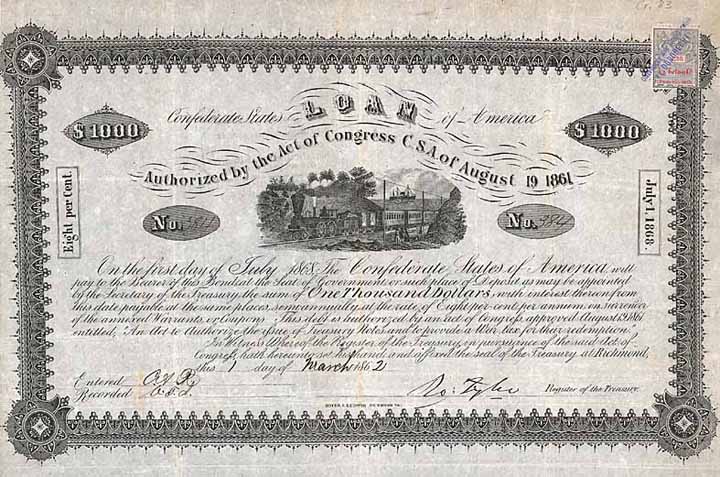 Cr. 23
LOAN
Confederate States of America
$1000 $1000
Authorized by the Act of Congress C.S.A. of August 19 1861
Eight per Cent
July 1, 1868
No. 384 No. 384
On the first day of July 1868, The Confederate States of America, will
pay to the Bearer of this Bond, at the Seat of Government, or such place of Deposit as may be appointed
by the Secretary of the Treasury, the sum of One Thousand Dollars, with interest thereon from
this date, payable at the same places, semi-annually, at the rate of Eight per Cent per annum, on surrender
of the annexed Warrants, or Coupons. This debt is authorized by an Act of Congress, approved August 19, 1861
entitled, "An Act to Authorize the issue of Treasury Notes, and to provide a War tax for their redemption."
In Witness Whereof the Register of the Treasury, in pursuance of the said Act of
Congress, hath hereunto set his hand, and affixed the seal of the Treasury at Richmond,
this 1 day of March 1862
Entered
Recorded
Ro: Tyler Register of the Treasury.